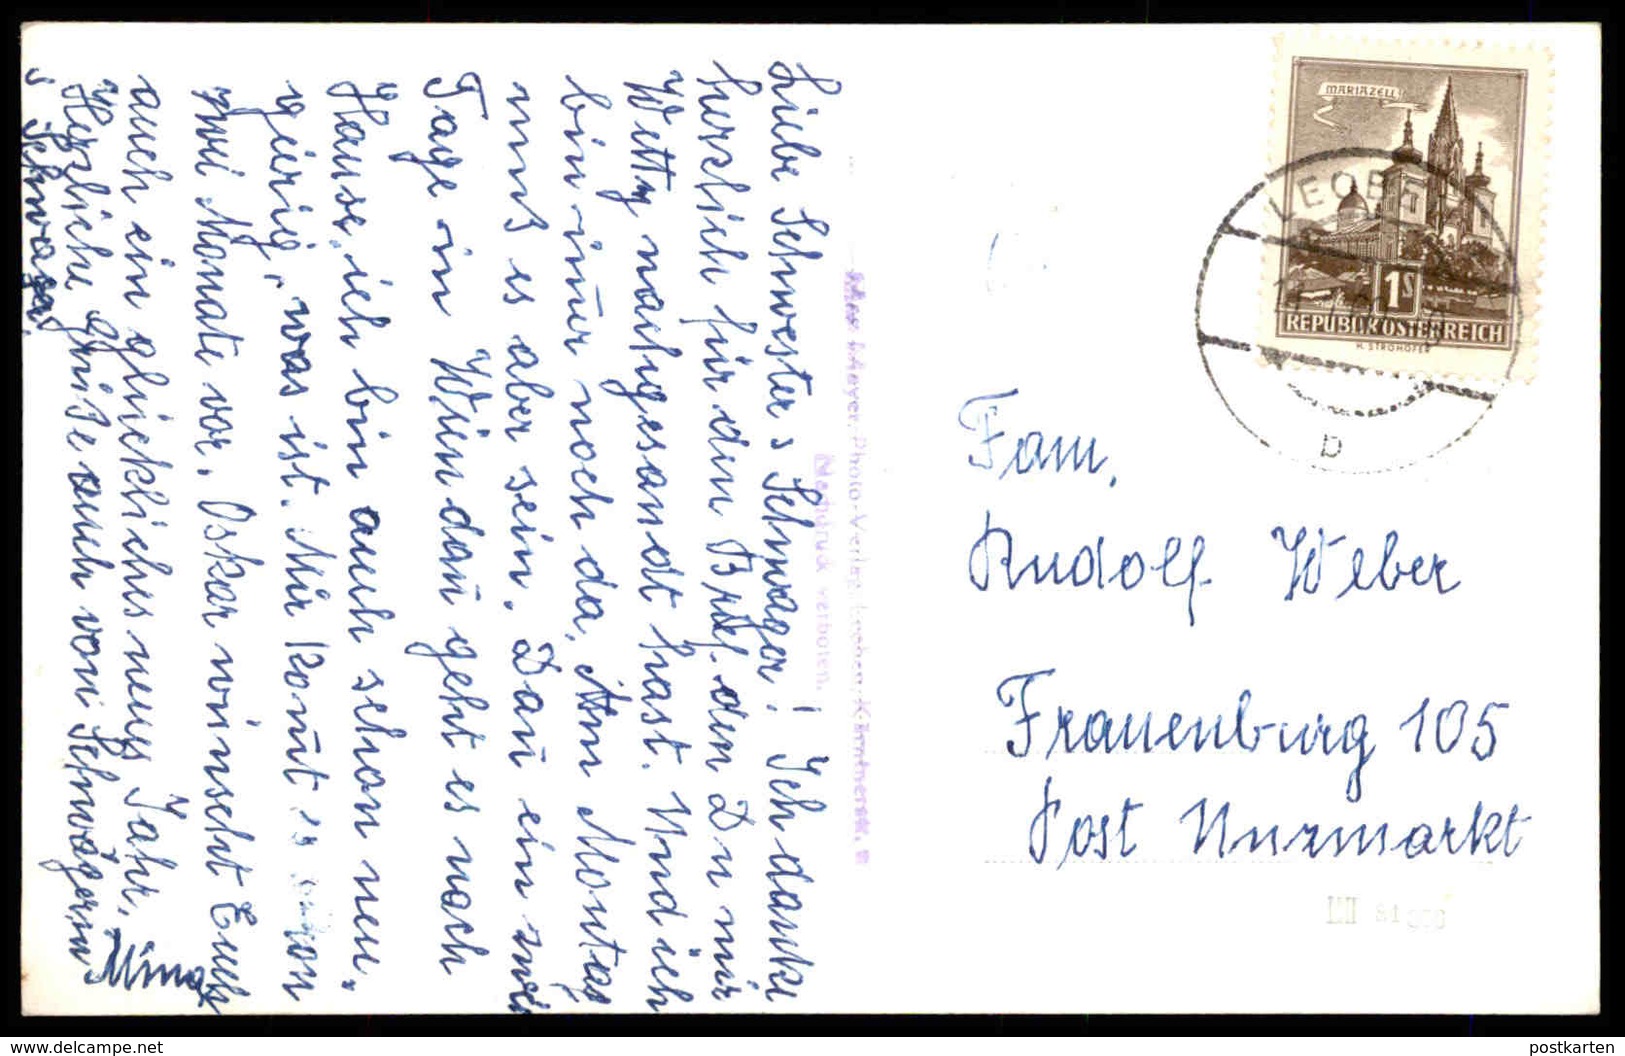 Liebe Schwester s Schwager! Ich danke
herzlich für den Brief. den Du mir
Wetty nachgesandt hast. Und ich
bin imer noch da, Am Montag
muss es aber sein. Dan ein zwei
Tage in Wien dan geht es nach
Hause, ich bin auch schon neu,
gierig, was ist. Mir komt es schon
zwei Monate vor. Oskar winscht Euch
auch ein glickliches neues Jahr.
Herzliche Griße auch von Schwägerin
s Schwager. Mina
Nachdruck verboten.
MARIAZELL
LEOBEN
1S
REPUBLIK ÖSTERREICH
H. STROHOFER
b
Fam.
Rudolf Weber
Frauenburg 105
Post Unzmarkt
delcampe.net
postkarten